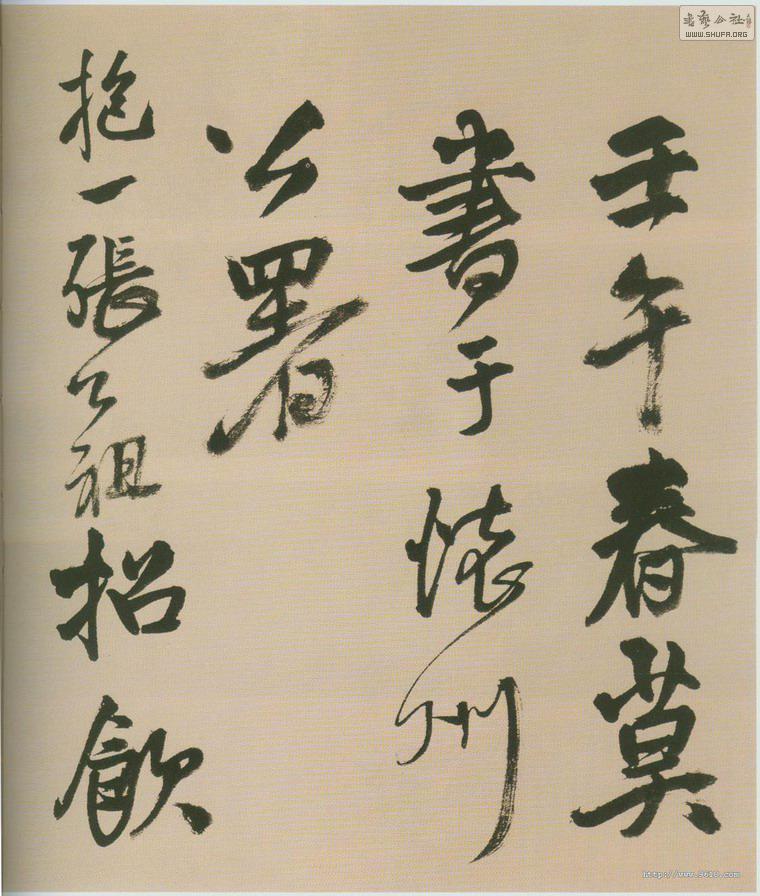 壬午春莫
書于懷州
公署
抱一張公祖招飲
WWW.SHUFA.ORG
http://www.9610.com